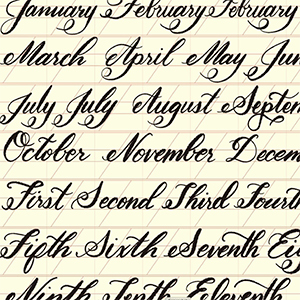 January February February
March April May Jun
July July August Septem
October November Decem
First Second Third Fourth
Fifth Sixth Seventh Ei
Ninth Tenth Eleventh